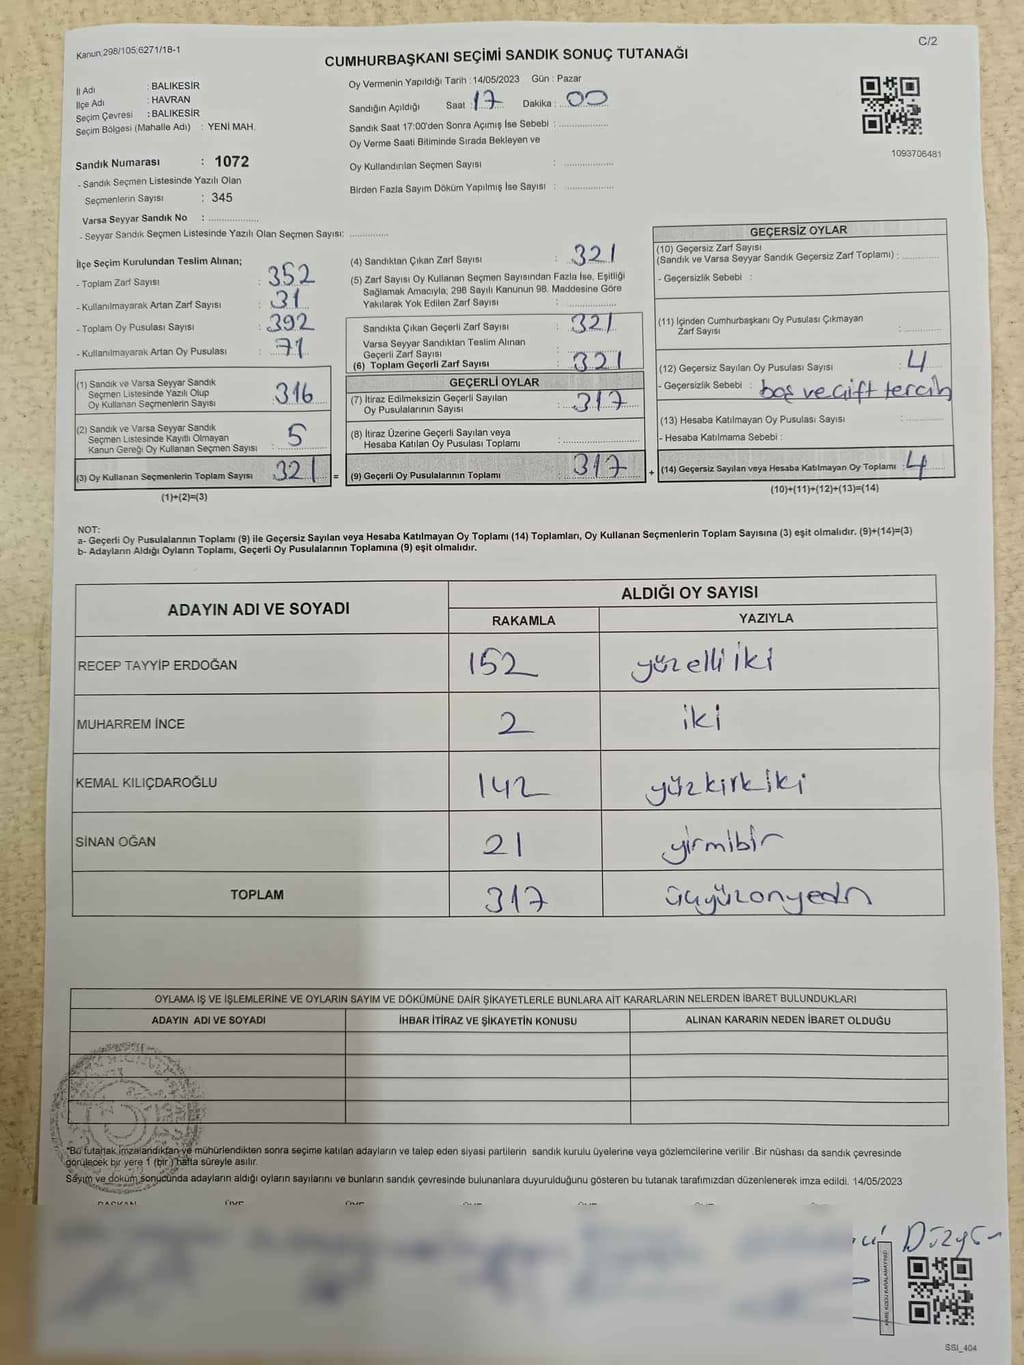 Kanun;298/105;6271/18-1
C/2
CUMHURBAŞKANI SEÇİMİ SANDIK SONUÇ TUTANAĞI
İl Adı : BALIKESİR
İlçe Adı : HAVRAN
Seçim Çevresi : BALIKESİR
Seçim Bölgesi (Mahalle Adı) : YENİ MAH.
Sandık Numarası : 1072
- Sandık Seçmen Listesinde Yazılı Olan
Seçmenlerin Sayısı : 345
Varsa Seyyar Sandık No : ..................
- Seyyar Sandık Seçmen Listesinde Yazılı Olan Seçmen Sayısı: ..............
Oy Vermenin Yapıldığı Tarih : 14/05/2023 Gün : Pazar
Sandığın Açıldığı Saat : 17 Dakika : 00
Sandık Saat 17:00'den Sonra Açımış İse Sebebi : ..................
Oy Verme Saati Bitiminde Sırada Bekleyen ve
Oy Kullandırılan Seçmen Sayısı : ..................
Birden Fazla Sayım Döküm Yapılmış İse Sayısı : ..................
1093706481
İlçe Seçim Kurulundan Teslim Alınan;
- Toplam Zarf Sayısı : 352
- Kullanılmayarak Artan Zarf Sayısı : 31
- Toplam Oy Pusulası Sayısı : 392
- Kullanılmayarak Artan Oy Pusulası : 71
(1) Sandık ve Varsa Seyyar Sandık
Seçmen Listesinde Yazılı Olup
Oy Kullanan Seçmenlerin Sayısı : 316
(2) Sandık ve Varsa Seyyar Sandık
Seçmen Listesinde Kayıtlı Olmayan
Kanun Gereği Oy Kullanan Seçmen Sayısı : 5
(3) Oy Kullanan Seçmenlerin Toplam Sayısı : 321 =
(1)+(2)=(3)
(4) Sandıktan Çıkan Zarf Sayısı : 321
(5) Zarf Sayısı Oy Kullanan Seçmen Sayısından Fazla İse, Eşitliği
Sağlamak Amacıyla, 298 Sayılı Kanunun 98. Maddesine Göre
Yakılarak Yok Edilen Zarf Sayısı : ..................
Sandıkta Çıkan Geçerli Zarf Sayısı : 321
Varsa Seyyar Sandıktan Teslim Alınan
Geçerli Zarf Sayısı : ..................
(6) Toplam Geçerli Zarf Sayısı : 321
GEÇERLİ OYLAR
(7) İtiraz Edilmeksizin Geçerli Sayılan
Oy Pusulalarının Sayısı : 317
(8) İtiraz Üzerine Geçerli Sayılan veya
Hesaba Katılan Oy Pusulası Toplamı : ..................
(9) Geçerli Oy Pusulalarının Toplamı : 317 +
GEÇERSİZ OYLAR
(10) Geçersiz Zarf Sayısı
(Sandık ve Varsa Seyyar Sandık Geçersiz Zarf Toplamı) : ..............
- Geçersizlik Sebebi :
(11) İçinden Cumhurbaşkanı Oy Pusulası Çıkmayan
Zarf Sayısı : ..............
(12) Geçersiz Sayılan Oy Pusulası Sayısı : 4
- Geçersizlik Sebebi : boş ve Çift tercih
(13) Hesaba Katılmayan Oy Pusulası Sayısı : ..............
- Hesaba Katılmama Sebebi :
(14) Geçersiz Sayılan veya Hesaba Katılmayan Oy Toplamı : 4
(10)+(11)+(12)+(13)=(14)
NOT:
a- Geçerli Oy Pusulalarının Toplamı (9) ile Geçersiz Sayılan veya Hesaba Katılmayan Oy Toplamı (14) Toplamları, Oy Kullanan Seçmenlerin Toplam Sayısına (3) eşit olmalıdır. (9)+(14)=(3)
b- Adayların Aldığı Oyların Toplamı, Geçerli Oy Pusulalarının Toplamına (9) eşit olmalıdır.
ADAYIN ADI VE SOYADI
ALDIĞI OY SAYISI
RAKAMLA YAZIYLA
RECEP TAYYİP ERDOĞAN 152 yüzelli iki
MUHARREM İNCE 2 iki
KEMAL KILIÇDAROĞLU 142 yüzkırkiki
SİNAN OĞAN 21 yirmibir
TOPLAM 317 üçyüzonyedi
OYLAMA İŞ VE İŞLEMLERİNE VE OYLARIN SAYIM VE DÖKÜMÜNE DAİR ŞİKAYETLERLE BUNLARA AİT KARARLARIN NELERDEN İBARET BULUNDUKLARI
ADAYIN ADI VE SOYADI İHBAR İTİRAZ VE ŞİKAYETİN KONUSU ALINAN KARARIN NEDEN İBARET OLDUĞU
"Bu tutanak imzalandıktan ve mühürlendikten sonra seçime katılan adayların ve talep eden siyasi partilerin sandık kurulu üyelerine veya gözlemcilerine verilir .Bir nüshası da sandık çevresinde
görülecek bir yere 1 (bir ) hafta süreyle asılır.
Sayım ve döküm sonucunda adayların aldığı oyların sayılarını ve bunların sandık çevresinde bulunanlara duyurulduğunu gösteren bu tutanak tarafımızdan düzenlenerek imza edildi. 14/05/2023
SSI_404